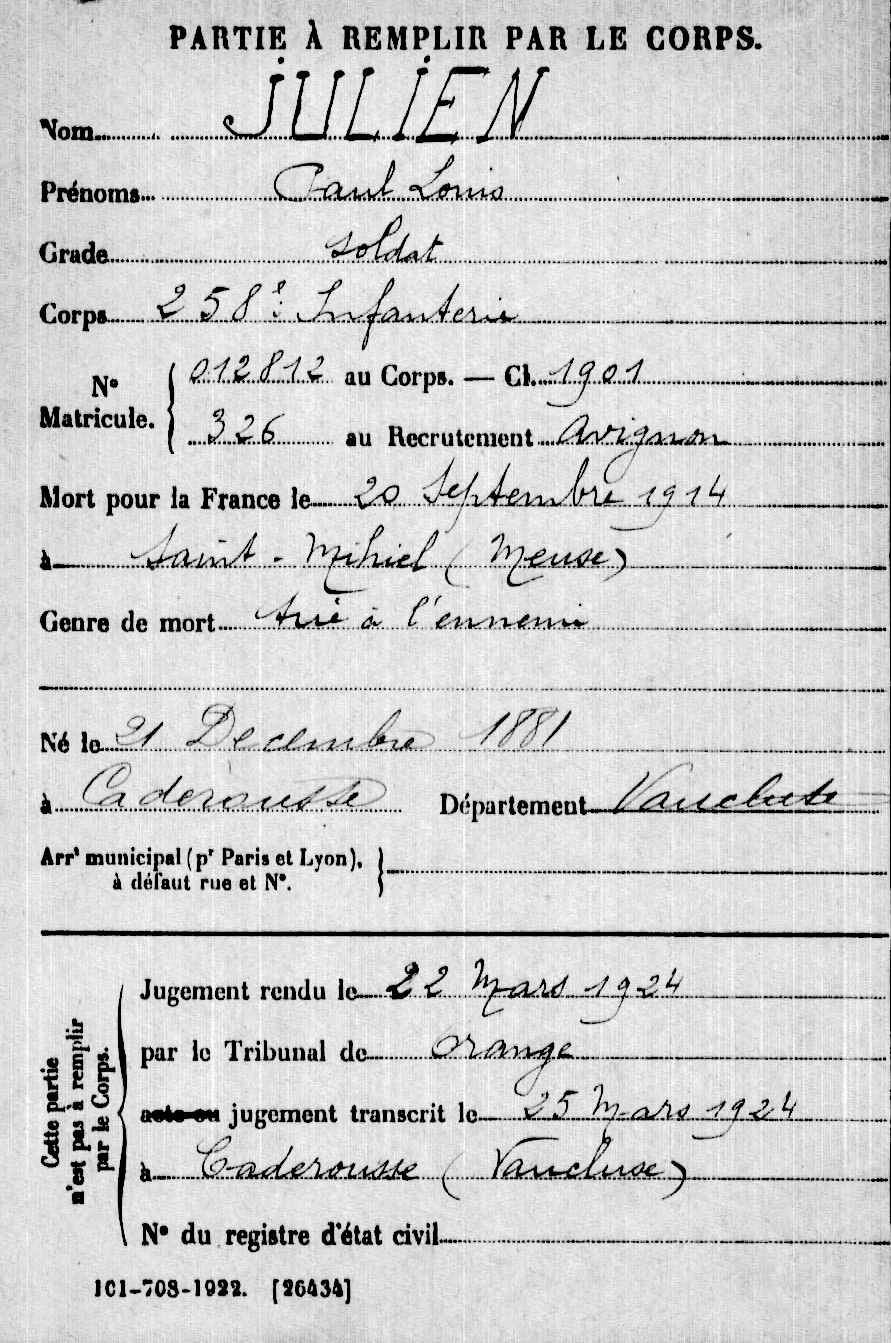 PARTIE À REMPLIR PAR LE CORPS.
Nom JULIEN
Prénoms Paul Louis
Grade soldat
Corps 258e Infanterie
N° Matricule. 012812 au Corps. — Cl. 1901
326 au Recrutement Avignon
Mort pour la France le 20 Septembre 1914
à Saint-Mihiel (Meuse)
Genre de mort tué à l'ennemi
Né le 21 Decembre 1881
à Caderousse Département Vaucluse
Arrt municipal (pr Paris et Lyon),
à défaut rue et N°.
Cette partie
n'est pas à remplir
par le Corps.
Jugement rendu le 22 Mars 1924
par le Tribunal de Orange
acte ou jugement transcrit le 25 Mars 1924
à Caderousse (Vaucluse)
N° du registre d'état civil
101-708-1922. [26434]